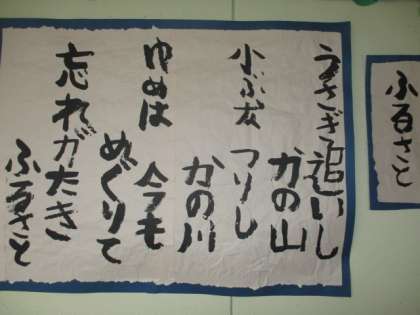 ふるさと
うさぎ追いし
かの山
小ぶな
つりし
かの川
ゆめは
今も
めぐりて
忘れがたき
ふるさと